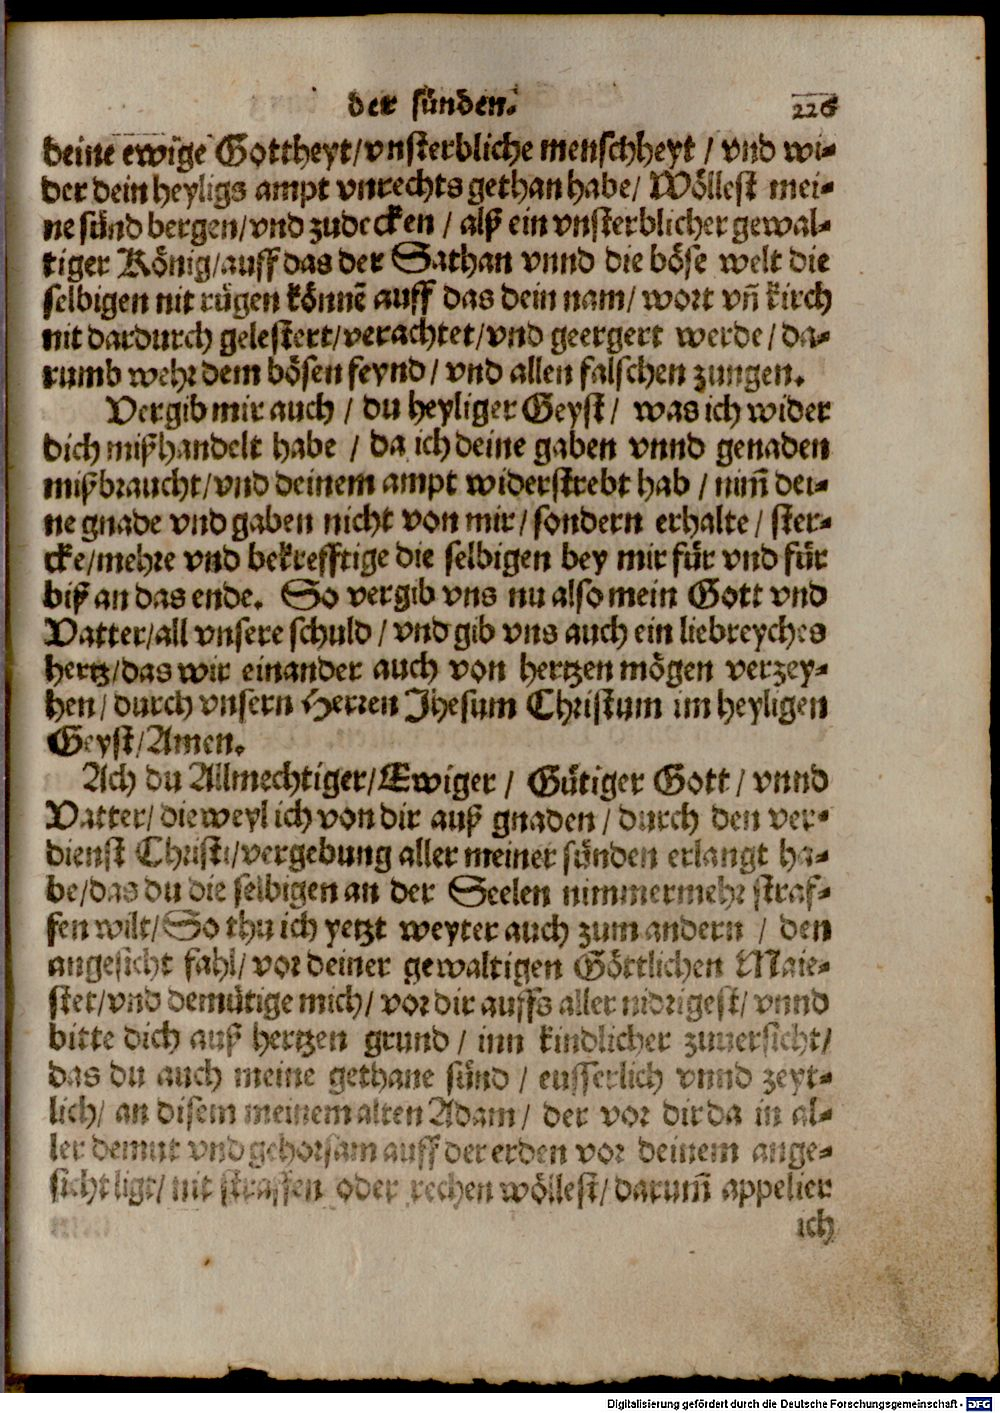 der sünden. 226
deine ewige Gottheyt/vnsterbliche menschheyt / vnd wi-
der dein heyligs ampt vnrechts gethan habe/ Wöllest mei-
ne sünd bergen/vnd zudecken / alß ein vnsterblicher gewal-
tiger König/auff das der Sathan vnnd die böse welt die
selbigen nit rügen könnē auff das dein nam/ wort vñ kirch
nit dardurch gelestert/verachtet/vnd geergert werde / da-
rumb wehr dem bösen feynd / vnd allen falschen zungen.
Vergib mir auch / du heyliger Geyst / was ich wider
dich mißhandelt habe / da ich deine gaben vnnd genaden
mißbraucht/vnd deinem ampt widerstrebt hab / nim̄ dei-
ne gnade vnd gaben nicht von mir/ sondern erhalte / ster-
cke/mehre vnd bekrefftige die selbigen bey mir für vnd für
biß an das ende. So vergib vns nu also mein Gott vnd
Vatter/all vnsere schuld / vnd gib vns auch ein liebreyches
hertz/das wir einander auch von hertzen mögen verzey-
hen/ durch vnsern Herren Jhesum Christum im heyligen
Geyst/Amen.
Ach du Allmechtiger/Ewiger / Gütiger Gott / vnnd
Vatter/ dieweyl ich von dir auß gnaden / durch den ver-
dienst Christi/vergebung aller meiner sünden erlangt ha-
be/das du die selbigen an der Seelen nimmermehr straf-
fen wilt/ So thu ich yetzt weyter auch zum andern / den
angesicht fahl/ vor deiner gewaltigen Göttlichen Maie-
stet/vnd demütige mich/ vor dir auffs aller nidrigest/ vnnd
bitte dich auß hertzen grund / inn kindlicher zuuersicht/
das du auch meine gethane sünd / eusserlich vnnd zeyt-
lich/ an disem meinem alten Adam / der vor dir da in al-
ler demut vnd gehorsam auff der erden vor deinem ange-
sicht ligt/ nit straffen oder rechen wöllest/ darum̄ appelier
ich
Digitalisierung gefördert durch die Deutsche Forschungsgemeinschaft - DFG